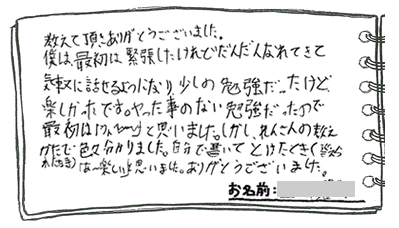 教えて頂きありがとうございました。
僕は、最初は、緊張したけれどだんだんなれてきて
気軽に話せるようになり、少しの勉強だったけど、
楽しかったです。やった事のない勉強だったので
最初は と思いました。しかし、れんさんの教え
かたで色々分かりました。自分で書いてとけたとき(答えが
わかったとき)は〜楽しいと思いました。ありがとうございました。
お名前: